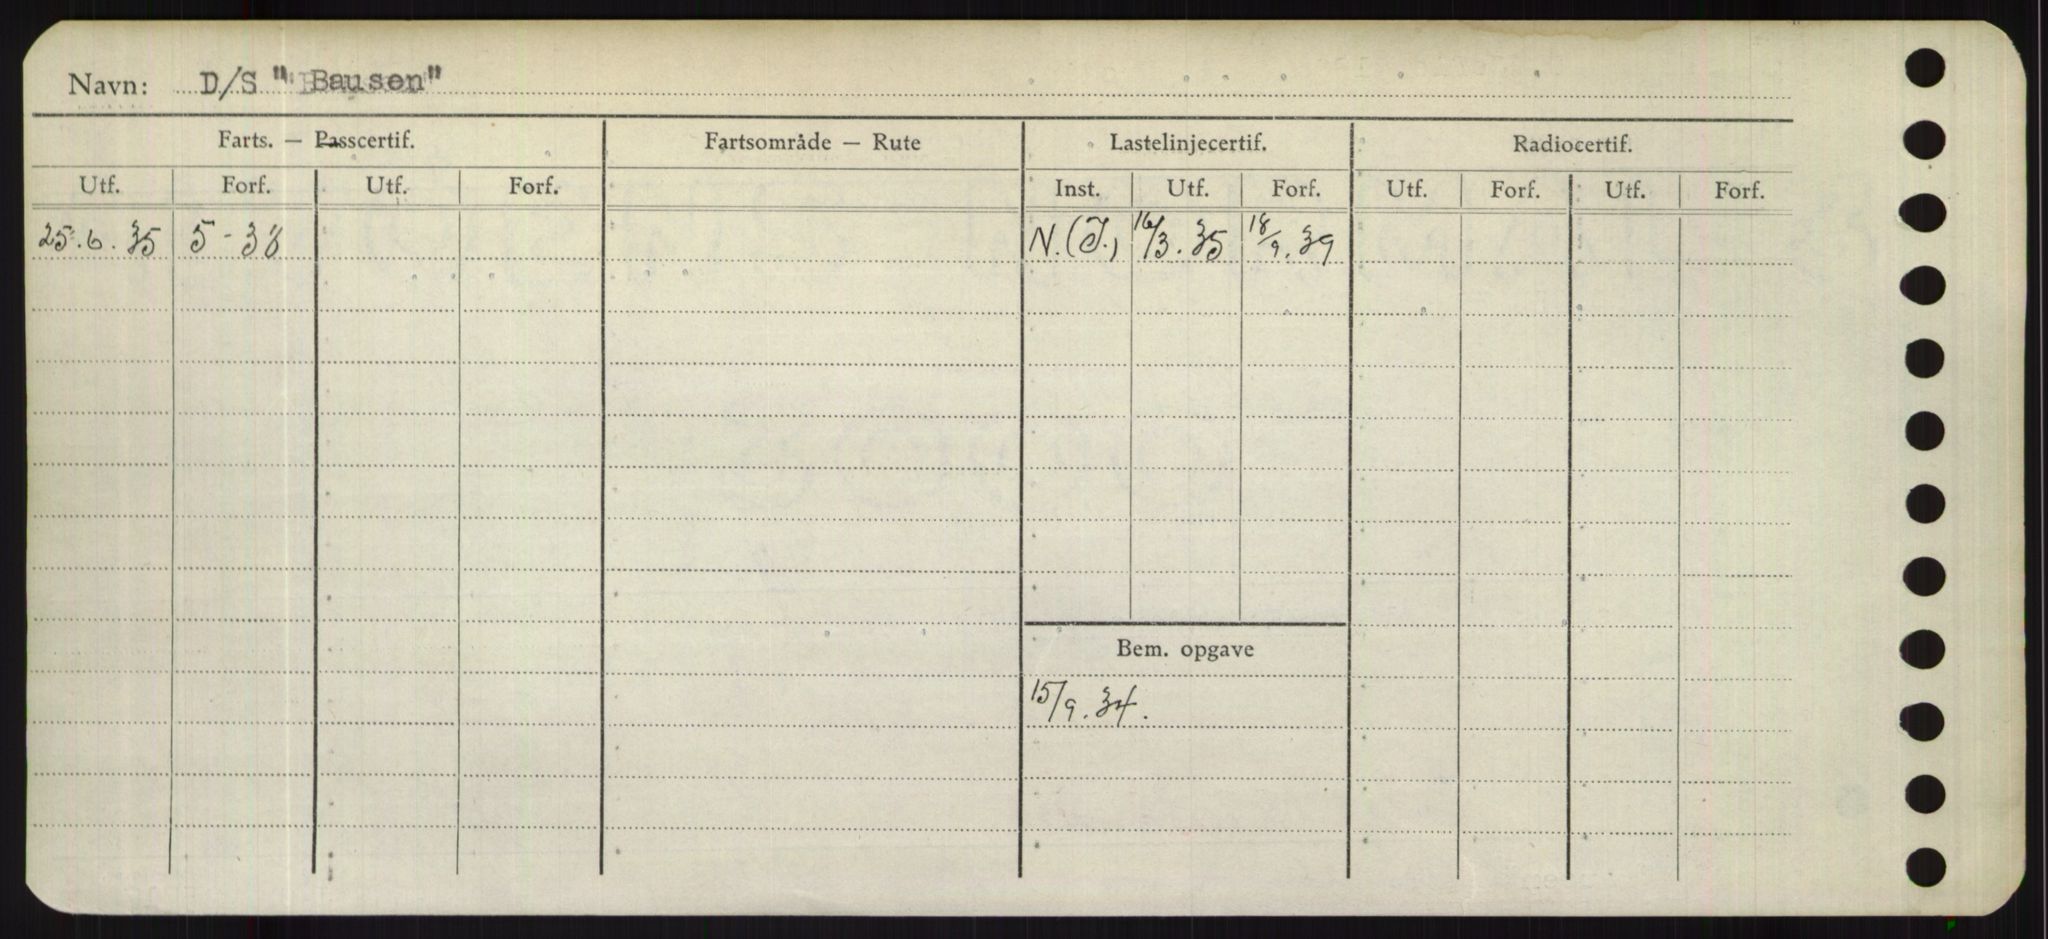 Navn: D/S "Bausen"
Farts. — Passcertif. Fartsområde — Rute Lastelinjecertif. Radiocertif.
Utf. Forf. Utf. Forf. Inst. Utf. Forf. Utf. Forf. Utf. Forf.
25.6.35 5-38 N.(T.) 16/3.35 18/9.39
Bem. opgave
15/9.34.